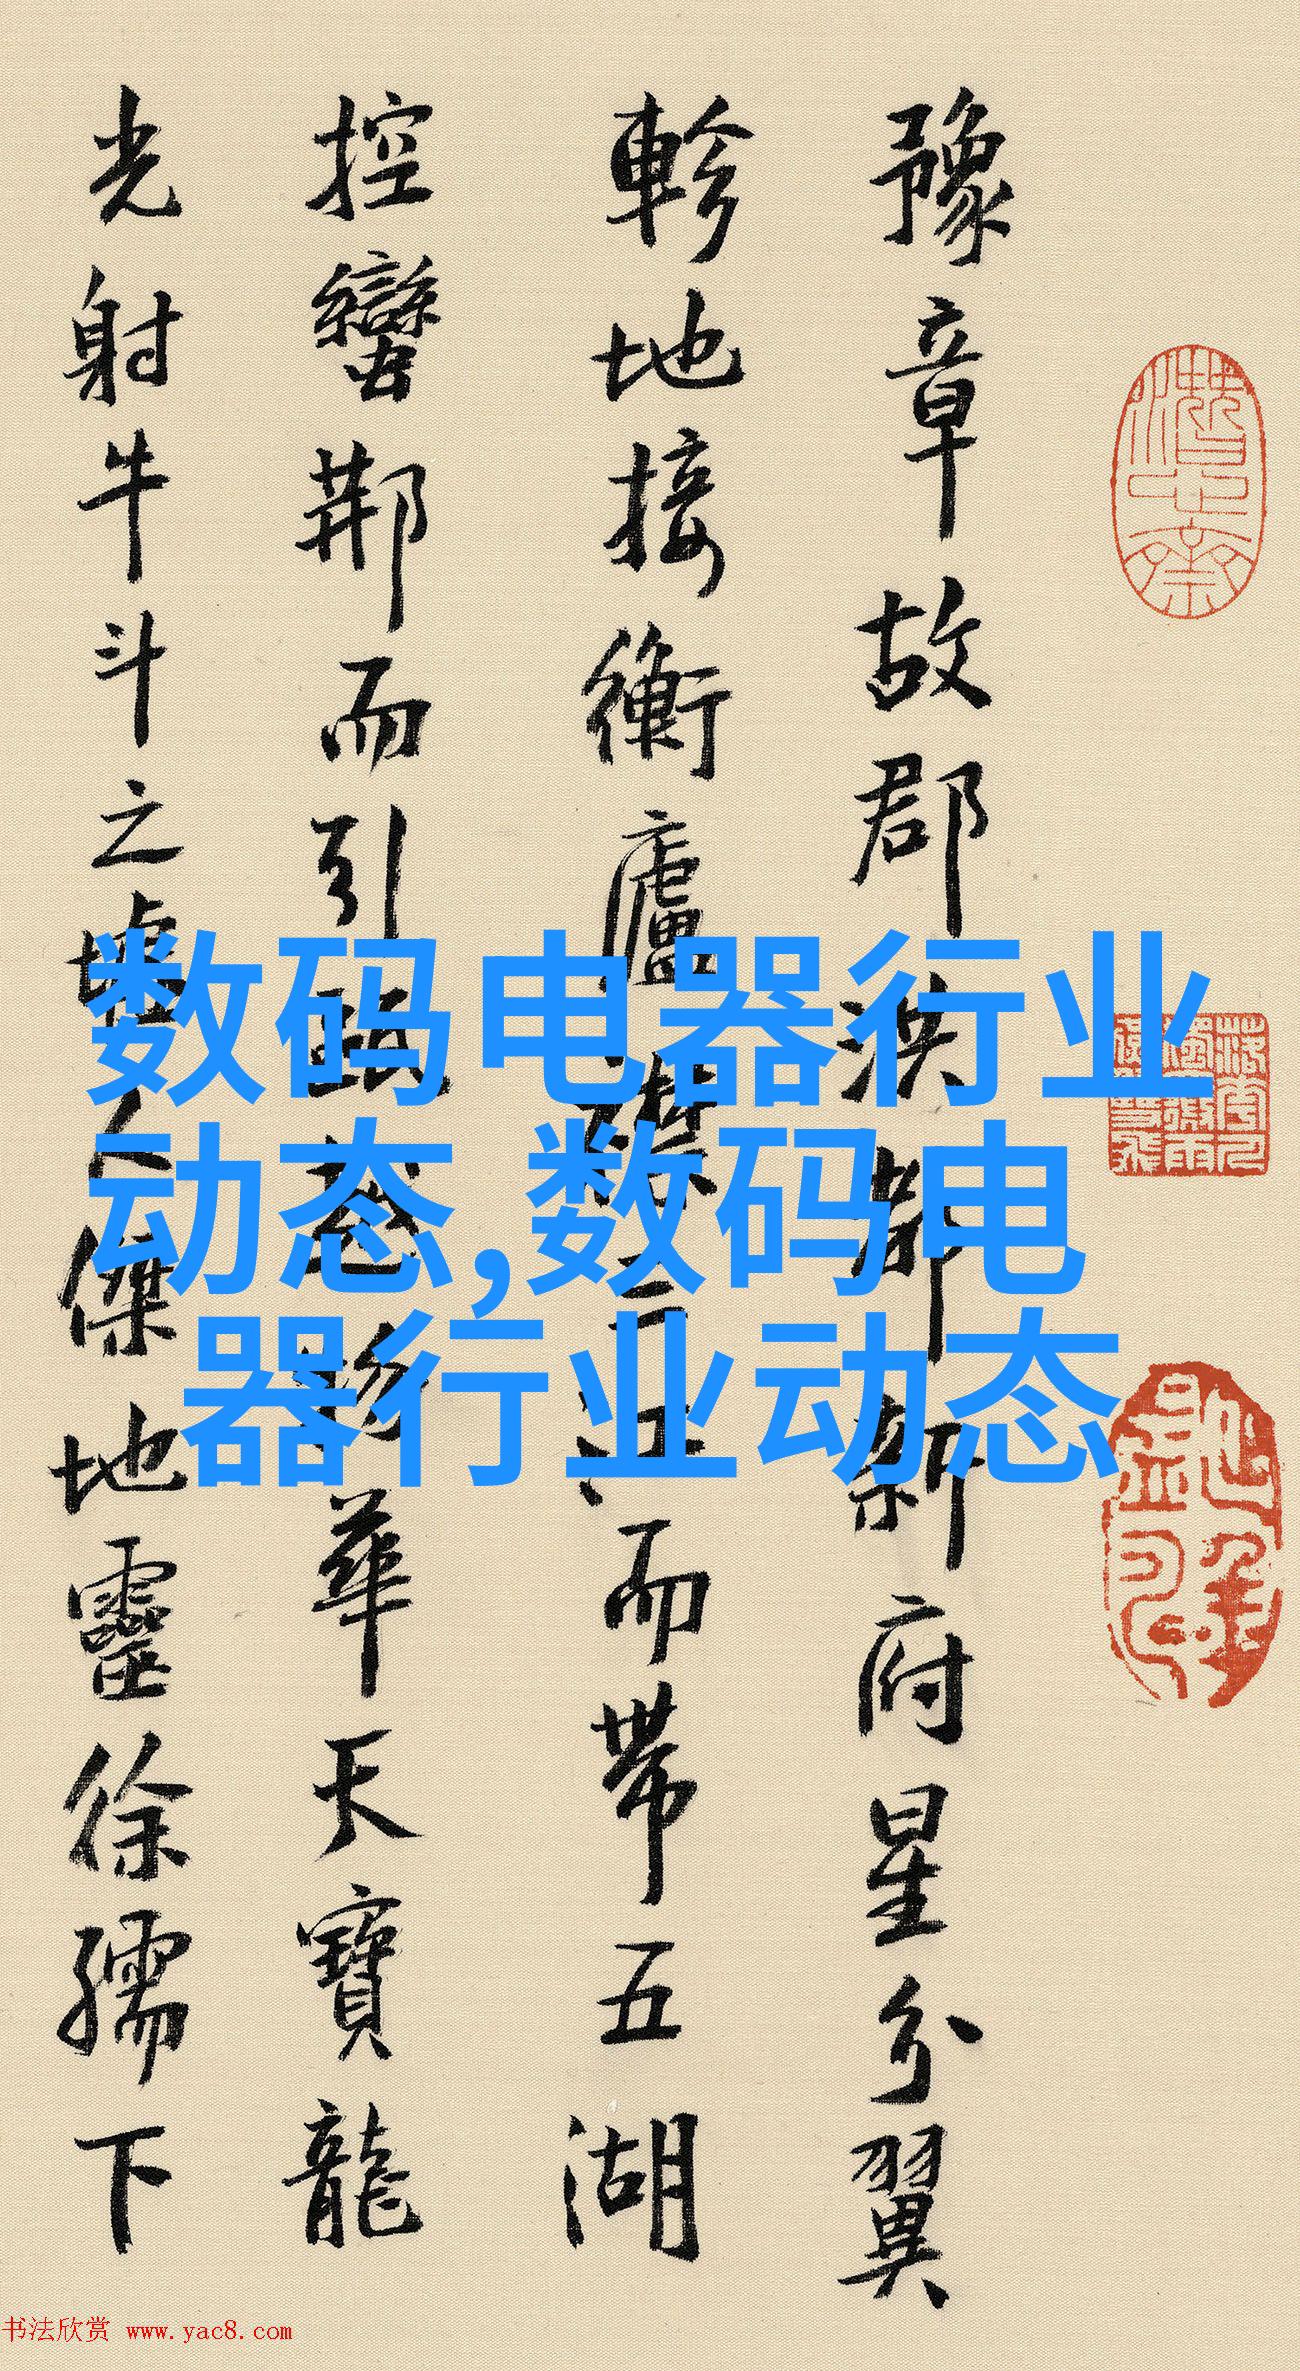 豫章故郡洪都新府星分翼
軫地接衡廬襟三江而帶五湖
控蠻荆而引甌越物華天寶龍
光射牛斗之墟人傑地靈徐孺下
数码电器行业
动态,数码电
器行业动态
书法欣赏 www.yac8.com